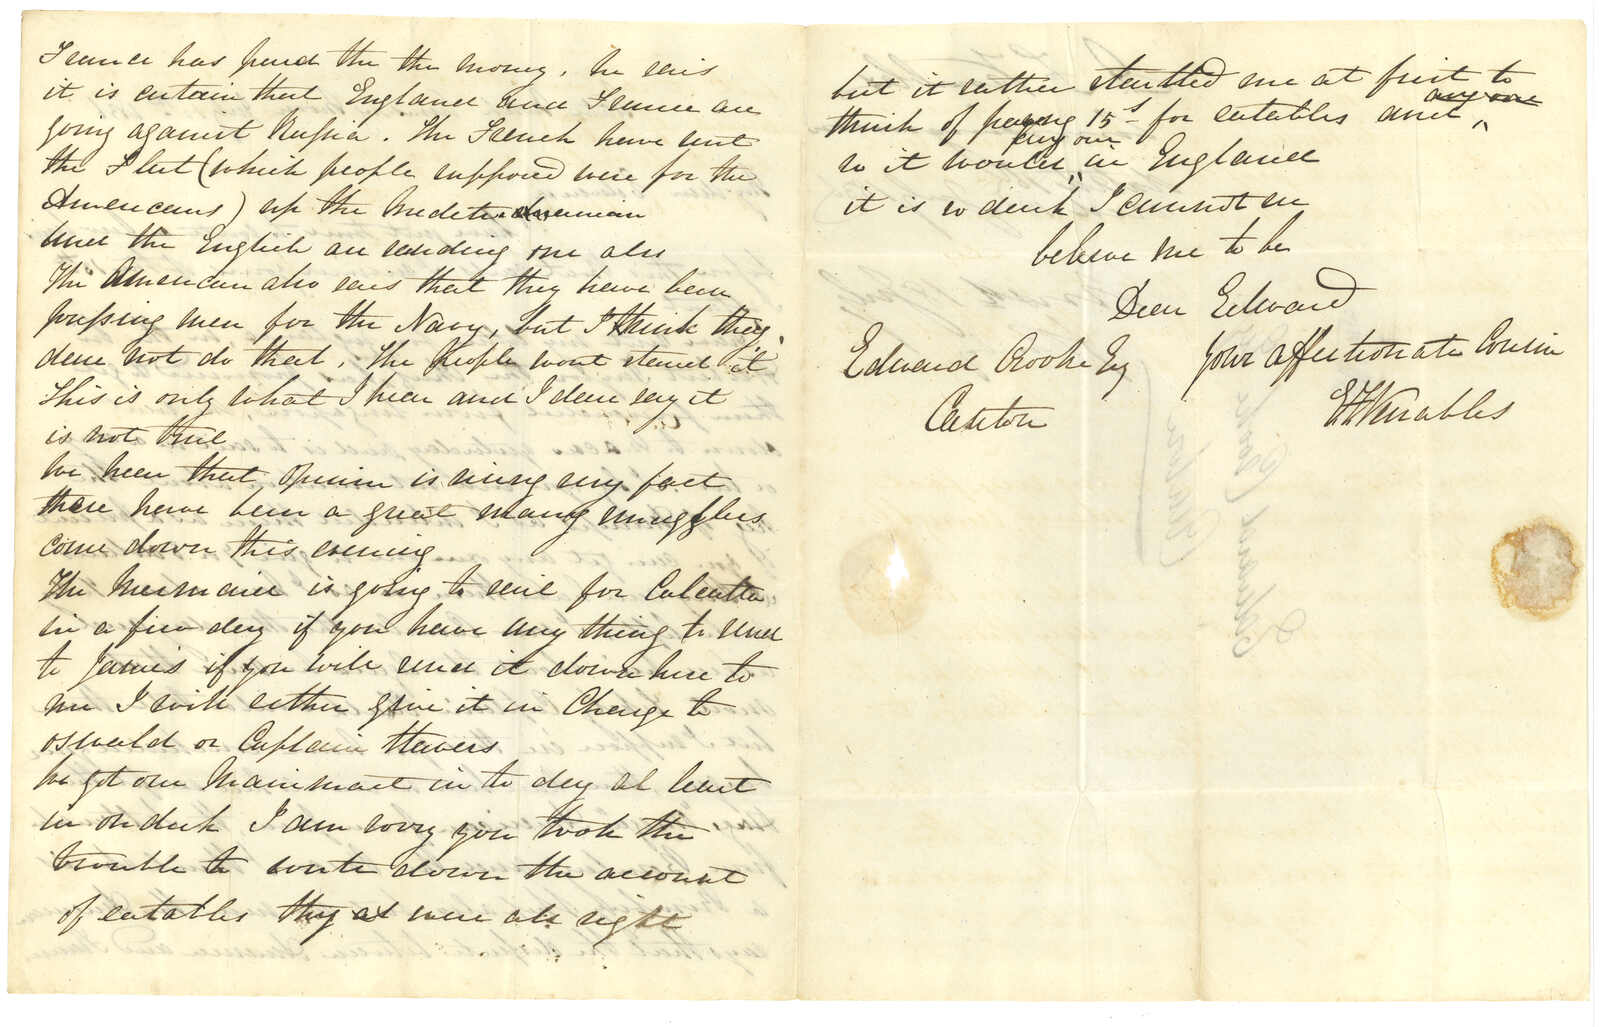 France has paid the the money, he sais
it is certain that England and France are
going against Russia. The French have sent
the Fleet (which people supposed were for the
Americans) up the Mediterranean
and the English are sending one also
The American also sais that they have been
pressing men for the Navy, but I think they
dare not do that. The People wont stand it
This is only what I hear and I dare say it
is not true
We hear that opium is rising very fast
there have been a great many smugglers
come down this evening
The Mermaid is going to sail for Calcutta
in a few day if you have any thing to send
to James if you will send it down here to
me I will either give it in Charge to
oswald or Captain Stavers
We got our Mainmast in to day at least
in on deck I am sorry you took the
trouble to write down the account
of eatables they at were all right
but it rather startled me at first to
think of paying 15s for eatables and any one
so it would any one in England
it is so dark I cannot see
believe me to be
Dear Edward
your affectionate Cousin
Edward Rooke Esq
Canton
E F Venables
Edward Rooke
Canton